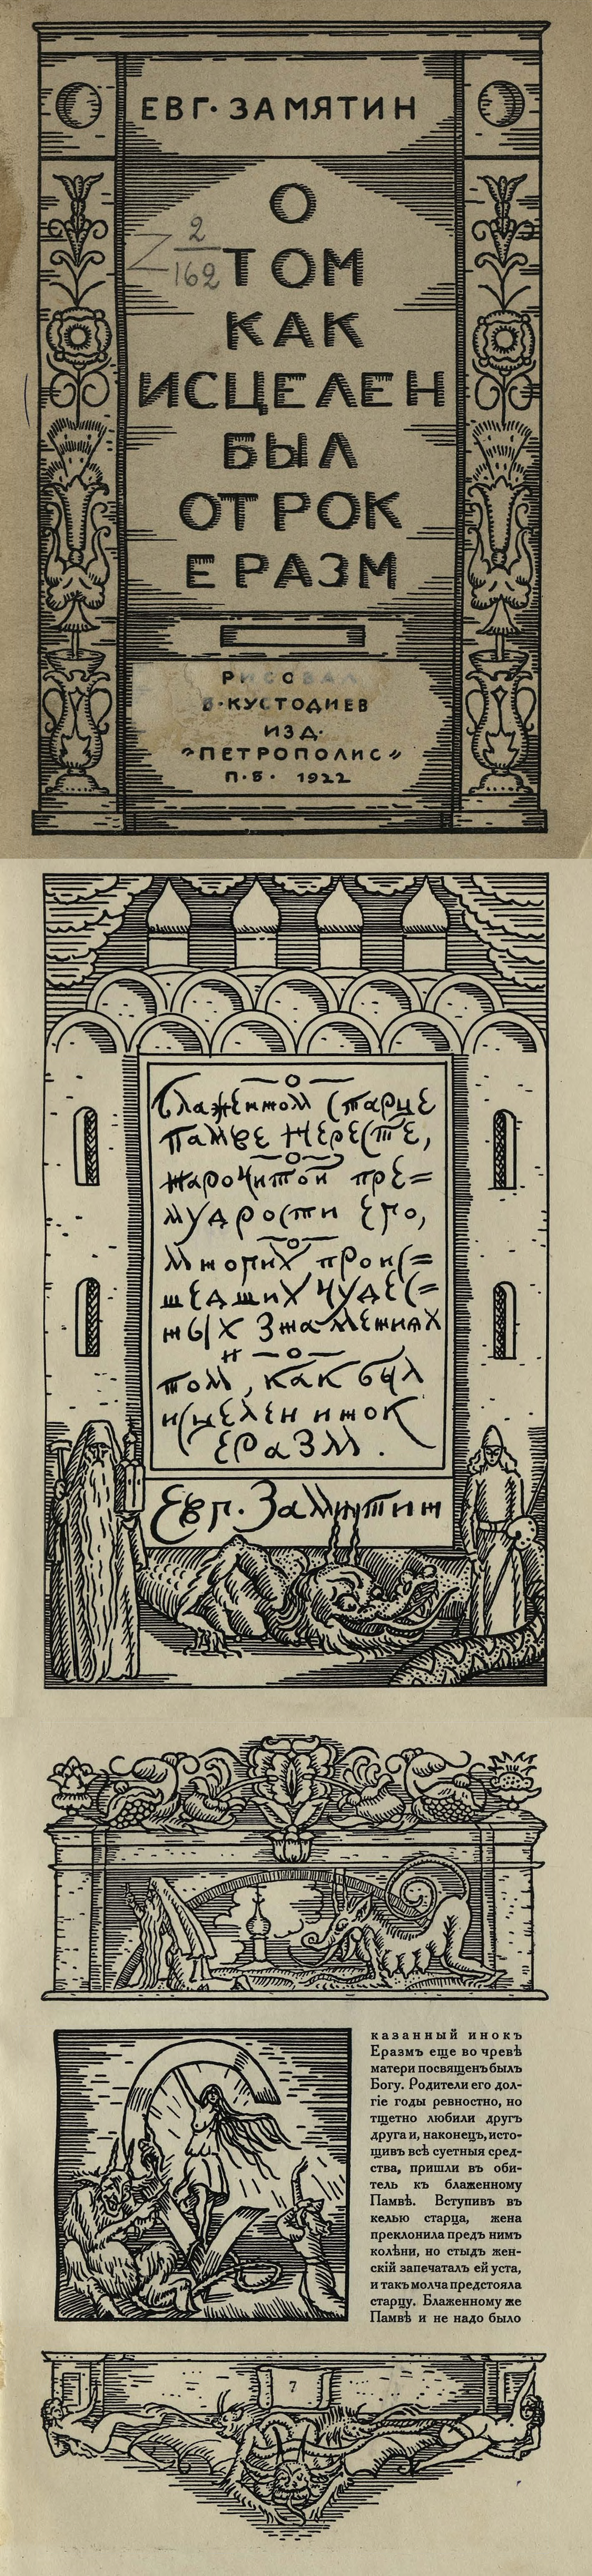 ЕВГ. ЗАМЯТИН
О
ТОМ
КАК
ИСЦЕЛЕН
БЫЛ
ОТРОК
ЕРАЗМ
2
162
РИСОВАЛ
Б. КУСТОДИЕВ
ИЗД.
"ПЕТРОПОЛИС"
П.Б. 1922
О
блаженном старце
Памве Нересте,
о
нарочитой пре=
мудрости его,
о
многих проис=
шедших чудес=
ных знамениях
и о
том, как был
исцелен инок
Еразм.
Евг. Замятин
казанный инокъ
Еразмъ еще во чревѣ
матери посвященъ былъ
Богу. Родители его дол-
гіе годы ревностно, но
тщетно любили другъ
друга и, наконецъ, исто-
щивъ всѣ суетныя сред-
ства, пришли въ оби-
тель къ блаженному
Памвѣ. Вступивъ въ
келью старца, жена
преклонила предъ нимъ
колѣни, но стыдъ жен-
скій запечаталъ ей уста,
и такъ молча предстояла
старцу. Блаженному же
Памвѣ и не надо было
7